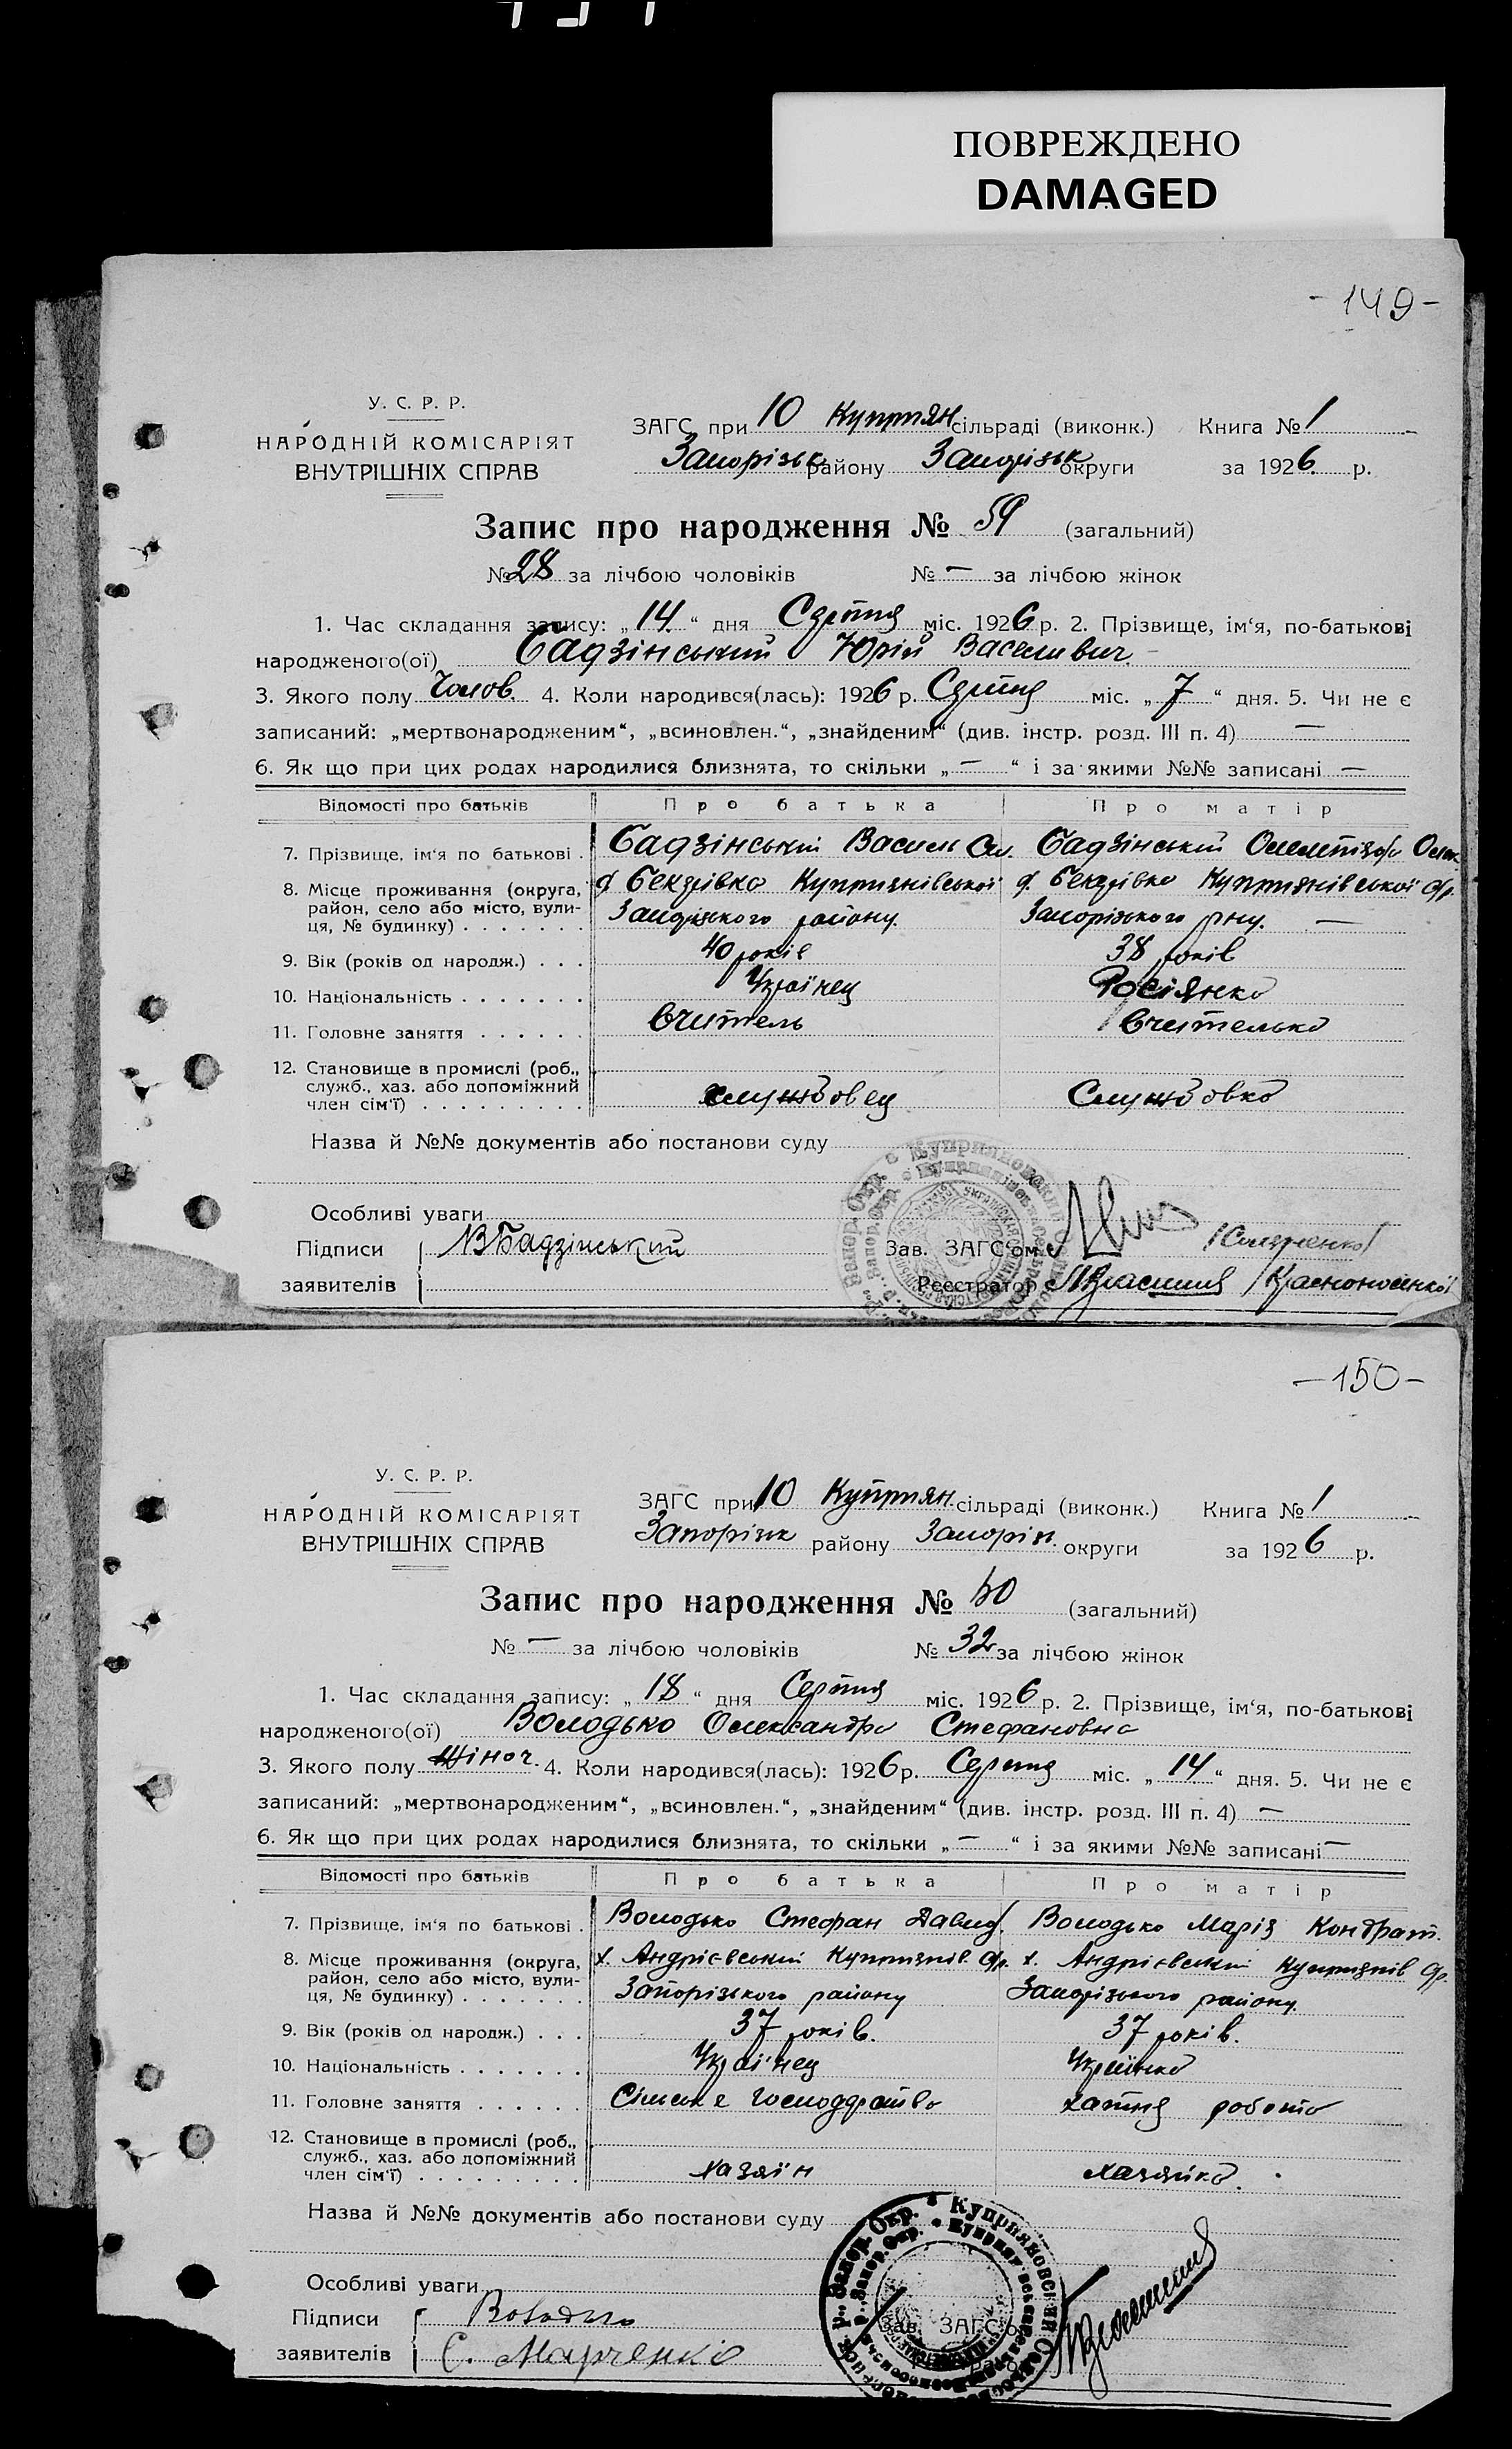 ПОВРЕЖДЕНО
DAMAGED
- 149 -
У. С. Р. Р.
НАРОДНІЙ КОМІСАРІЯТ
ВНУТРІШНІХ СПРАВ
ЗАГС при 10 Куприян сільраді (виконк.) Книга № 1
Запорізьк району Запорізьк округи за 1926 р.
Запис про народження № 59 (загальний)
№ 28 за лічбою чоловіків № — за лічбою жінок
1. Час складання запису: „14“ дня Серпня міс. 1926 р. 2. Прізвище, ім‘я, по-батькові
народженого(ої) Бадзінський Юрій Васильевич
3. Якого полу Чолов. 4. Коли народився(лась): 1926 р. Серпня міс. „7“ дня. 5. Чи не є
записаний: „мертвонародженим“, „всиновлен.“, „знайденим“ (див. інстр. розд. III п. 4) —
6. Як що при цих родах народилися близнята, то скільки „—“ і за якими №№ записані —
Відомості про батьків Про батька Про матір
7. Прізвище, ім‘я по батькові . Бадзінський Василь Бадзінський
8. Місце проживання (округа, район, село або місто, вулиця, № будинку) . . . . . . .
Куприянівської Куприянівської
Запорізького району. Запорізького рну. —
9. Вік (років од народж.) . . . 40 років 38 років
10. Національність . . . . . . . Українец Росіянка
11. Головне заняття . . . . . . Вчитель Вчителька
12. Становище в промислі (роб., служб., хаз. або допоміжний член сім‘ї) . . . . . . . . . службовец Службовка
Назва й №№ документів або постанови суду
Особливі уваги
Підписи ВБадзінський Зав. ЗАГС‘ом
заявителів Реєстратор
- 150 -
У. С. Р. Р.
НАРОДНІЙ КОМІСАРІЯТ
ВНУТРІШНІХ СПРАВ
ЗАГС при 10 Куприян. сільраді (виконк.) Книга № 1
Запорізьк району Запоріз. округи за 1926 р.
Запис про народження № 60 (загальний)
№ — за лічбою чоловіків № 32 за лічбою жінок
1. Час складання запису: „18“ дня Серпня міс. 1926 р. 2. Прізвище, ім‘я, по-батькові
народженого(ої) Володько Олександра Стефановна
3. Якого полу Жіноч. 4. Коли народився(лась): 1926 р. Серпня міс. „14“ дня. 5. Чи не є
записаний: „мертвонародженим“, „всиновлен.“, „знайденим“ (див. інстр. розд. III п. 4) —
6. Як що при цих родах народилися близнята, то скільки „—“ і за якими №№ записані —
Відомості про батьків Про батька Про матір
7. Прізвище, ім‘я по батькові . Володько Стефан Давид. Володько Марія Кондрат.
8. Місце проживання (округа, район, село або місто, вулиця, № будинку) . . . . . . .
х. Андрієвський Куприянів. х. Андрієвський Куприянів
Запорізького району Запорізького району.
9. Вік (років од народж.) . . . 37 років. 37 років.
10. Національність . . . . . . . Українец Українка
11. Головне заняття . . . . . . Сільське господарство хатня робота
12. Становище в промислі (роб., служб., хаз. або допоміжний член сім‘ї) . . . . . . . . . хазяїн хазяйка.
Назва й №№ документів або постанови суду
Особливі уваги
Підписи Зав. ЗАГС‘ом
заявителів С. Марченко